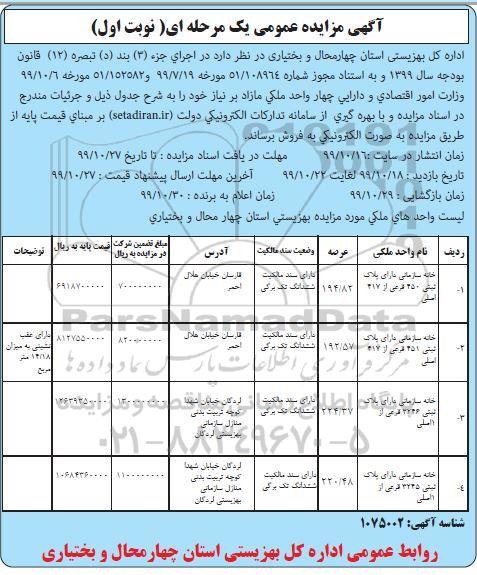 آگهی مزایده عمومی یک مرحله ای( نوبت اول)
اداره کل بهزیستی استان چهارمحال و بختیاری در نظر دارد در اجرای جزء (۳) بند (د) تبصره (۱۲) قانون
بودجه سال ۱۳۹۹ و به استناد مجوز شماره ۵۱/۱۰۸۹۶۴ مورخه ۹۹/۷/۱۹ و۵۱/۱۵۲۵۸۲ مورخه ۹۹/۱۰/۶
وزارت امور اقتصادی و دارایی چهار واحد ملکی مازاد بر نیاز خود را به شرح جدول ذیل و جزئیات مندرج
در اسناد مزایده و با بهره گیری از سامانه تدارکات الکترونیکی دولت (setadiran.ir) بر مبنای قیمت پایه از
طریق مزایده به صورت الکترونیکی به فروش برساند.
زمان انتشار در سایت :۹۹/۱۰/۱۶ مهلت در یافت اسناد مزایده : تا تاریخ ۹۹/۱۰/۲۷
تاریخ بازدید : ۹۹/۱۰/۱۸ لغایت ۹۹/۱۰/۲۲ آخرین مهلت ارسال پیشنهاد قیمت : ۹۹/۱۰/۲۷
زمان بازگشایی : ۹۹/۱۰/۲۹ زمان اعلام به برنده : ۹۹/۱۰/۳۰
لیست واحد های ملکی مورد مزایده بهزیستی استان چهار محال و بختیاری
ردیف نام واحد ملکی عرصه وضعیت سند مالکیت آدرس مبلغ تضمین شرکت در مزایده به ریال قیمت پایه به ریال توضیحات
۱- خانه سازمانی دارای پلاک ثبتی ۴۵۰ فرعی از ۴۱۷ اصلی ۱۹۴/۸۲ دارای سند مالکیت ششدانگ تک برگی فارسان خیابان هلال احمر ۷۰۰۰۰۰۰۰۰ ۶۹۱۸۷۰۰۰۰۰
۲- خانه سازمانی دارای پلاک ثبتی ۴۵۱ فرعی از ۴۱۷ اصلی ۱۹۲/۵۷ دارای سند مالکیت ششدانگ تک برگی فارسان خیابان هلال احمر ۸۲۰۰۰۰۰۰۰ ۸۱۲۷۵۵۰۰۰۰ دارای عقب نشینی به میزان ۱۴/۱۸ متر مربع
۳- خانه سازمانی دارای پلاک ثبتی ۳۲۴۶ فرعی از ۱اصلی ۲۲۴/۳۷ دارای سند مالکیت ششدانگ تک برگی لردگان خیابان شهدا کوچه تربیت بدنی منازل سازمانی بهزیستی لردگان ۱۳۰۰۰۰۰۰۰۰ ۱۲۶۳۹۳۵۰۰۰۰
۴- خانه سازمانی دارای پلاک ثبتی ۳۲۴۵ فرعی از ۱اصلی ۲۲۰/۴۸ دارای سند مالکیت ششدانگ تک برگی لردگان خیابان شهدا کوچه تربیت بدنی منازل سازمانی بهزیستی لردگان ۱۱۰۰۰۰۰۰۰۰ ۱۰۶۸۴۳۶۰۰۰۰
ParsNamadData
مرکز فرآوری اطلاعات پارس نماد داده ها
۰۲۱-۸۸۳۴۹۶۷۰-۵
شناسه آگهی: ۱۰۷۵۰۰۲
روابط عمومی اداره کل بهزیستی استان چهارمحال و بختیاری